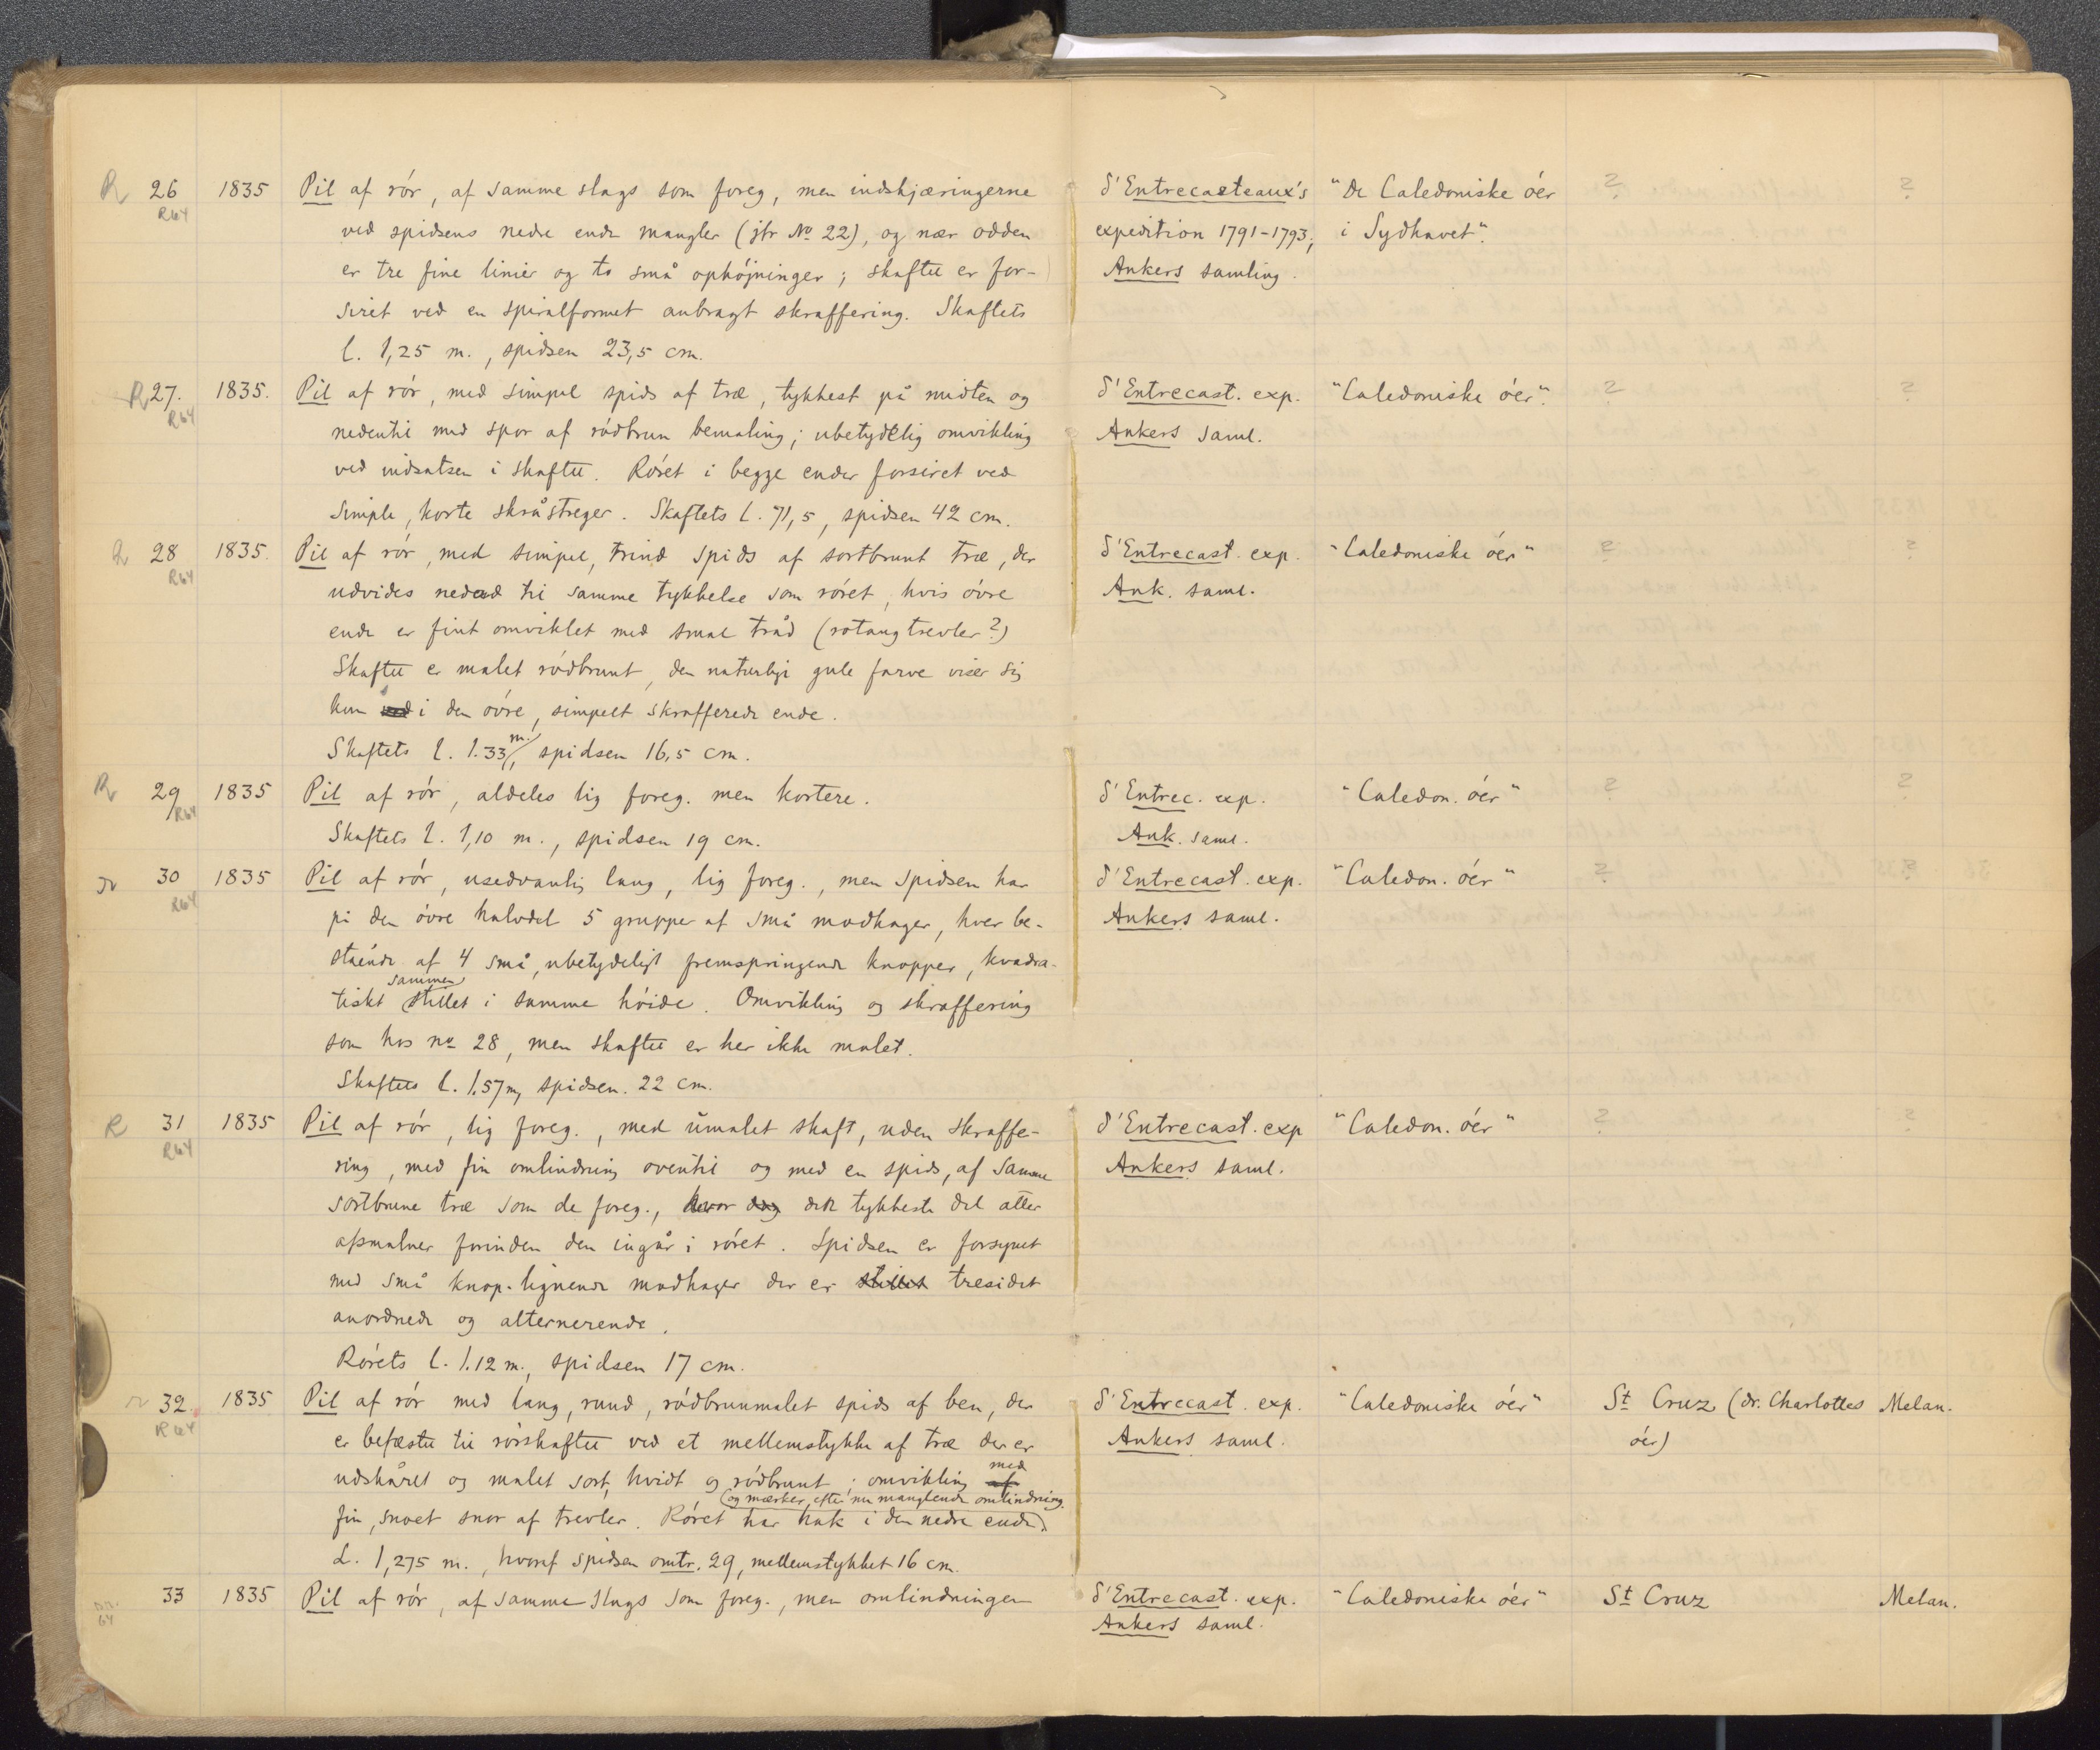 R 26 1835 Pil af rór, af samme slags som foreg, men indskjæringerne d'Entrecasteaux's "De Caledoniske óer ? ?
R64 ved spidsens nedre ende mangler (jfr No 22), og nær odden expedition 1791-1793; i Sydhavet".
er tre fine linier og to små ophöjninger; skaftet er for- Ankers samling.
siret ved en spiralformet anbragt skraffering. Skaftets
l. 1,25 m., spidsen 23,5 cm.
R 27. 1835. Pil af rór, med simpel spids af træ, tykkest på midten og d'Entrecast. exp. "Caledoniske óer". ? ?
R64 nedentil med spor af ródbrun bemaling; ubetydelig omvikling Ankers saml.
ved indsatsen i skaftet. Róret i begge ender forsiret ved
simple, korte skråstreger. Skaftets l. 71,5, spidsen 42 cm.
R 28 1835. Pil af rór, med simpel, trind spids af sortbrunt træ, der d'Entrecast. exp. "Caledoniske óer" ? ?
R64 udvides nedad til samme tykkelse som róret, hvis óvre Ank. saml.
ende er fint omviklet med smal tråd (rotangtrevler?)
Skaftet er malet ródbrunt, den naturlige gule farve viser sig
kun ved i den óvre, simpelt skrafferede ende.
Skaftets l. 1.33 m., spidsen 16,5 cm.
R 29 1835 Pil af rór, aldeles lig foreg. men kortere. d'Entrec. exp. "Caledon. óer" ? ?
R64 Skaftets l. 1,10 m., spidsen 19 cm. Ank. saml.
R 30 1835 Pil af rór, usedvanlig lang, lig foreg., men spidsen har d'Entrecast. exp. "Caledon. óer" ? ?
R64 på den óvre halvdel 5 grupper af små modhager, hver be- Ankers saml.
stående af 4 små, ubetydeligt fremspringende knopper, kvadra-
tiskt sammenstillet i samme hóide. Omvikling og skraffering
som hos no 28, men skaftet er her ikke malet.
Skaftets l. 1.57 m, spidsen. 22 cm.
R 31 1835 Pil af rór, lig foreg., med umalet skaft, uden skraffe- d'Entrecast. exp "Caledon. óer" ? ?
R64 ring, med fin omlindning oventil og med en spids, af samme Ankers saml.
sortbrune træ som de foreg., hvor dog den tykkeste del atter
afsmalner forinden den ingår i róret. Spidsen er forsynet
med små knop-lignende modhager der er stillet tresidet
anordnede og alternerende.
Rórets l. 1.12 m., spidsen 17 cm.
R 32. 1835 Pil af rór med lang, rund, ródbrunmalet spids af ben, der d'Entrecast. exp. "Caledoniske óer" St Cruz (dr. Charlottes Melan.
R64 er befæstet til rórskaftet ved et mellemstykke af træ der er Ankers saml. óer)
udskåret og malet sort, hvidt og ródbrunt; omvikling af med
fin, snoet snor af trevler. Róret har hak i den nedre ende (og mærker efter nu manglende omlindning).
L. 1,275 m., hvoraf spidsen omtr. 29, mellemstykket 16 cm.
33 1835 Pil af rór, af samme slags som foreg., men omlindningen d'Entrecast. exp. "Caledoniske óer" St Cruz Melan.
64 Ankers saml.